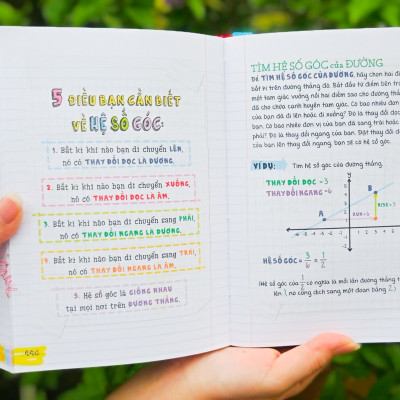 5 ĐIỀU BẠN CẦN BIẾT
VỀ HỆ SỐ GÓC:
1. Bất kì khi nào bạn di chuyển LÊN,
nó có THAY ĐỔI DỌC LÀ DƯƠNG.
2. Bất kì khi nào bạn di chuyển XUỐNG,
nó có THAY ĐỔI DỌC LÀ ÂM.
3. Bất kì khi nào bạn di chuyển sang PHẢI,
nó có THAY ĐỔI NGANG LÀ DƯƠNG.
4. Bất kì khi nào bạn di chuyển sang TRÁI,
nó có THAY ĐỔI NGANG LÀ ÂM.
5. Hệ số góc là GIỐNG NHAU
tại mọi nơi trên ĐƯỜNG THẲNG.
TÌM HỆ SỐ GÓC của ĐƯỜNG
Để TÌM HỆ SỐ GÓC CỦA ĐƯỜNG, hãy chọn hai đ
bất kì trên đường thẳng đó. Bắt đầu từ điểm bên tr
một tam giác vuông nối hai điểm sao cho đường thẳn
đã cho là cạnh huyền tam giác. Có bao nhiêu đơn
của bạn đã đi lên hoặc đi xuống? Đó là thay đổi dọc
bạn. Có bao nhiêu đơn vị của bạn đã sang trái hoặc
phải? Đó là thay đổi ngang của bạn. Đặt thay đổi d
của bạn lên thay đổi ngang, bạn sẽ có hệ số góc.
VÍ DỤ:
Tìm hệ số góc của đường thẳng.
THAY ĐỔI DỌC = 3
THAY ĐỔI NGANG = 6
y
B
RISE = 3
A
RUN = 6
x
HỆ SỐ GÓC = 3/6 = 1/2
(Hệ số góc của 1/2 có nghĩa là mỗi lần đường thẳng t
lên 1 nó cũng dịch sang một đoạn bằng 2.)